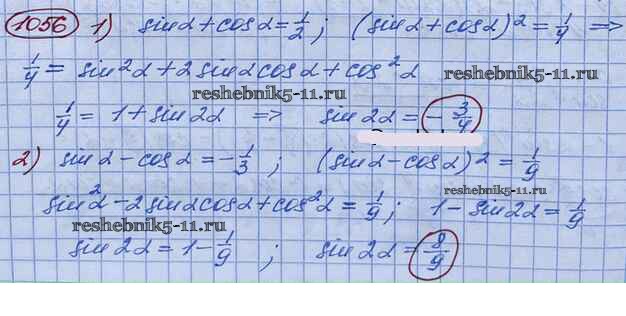 1056 1) sinα + cosα = 1/2 ; (sinα + cosα)² = 1/4 =>
1/4 = sin²α + 2 sinα cosα + cos²α reshebnik5-11.ru
reshebnik5-11.ru
1/4 = 1 + sin2α => sin2α = -3/4
2) sinα - cosα = -1/3 ; (sinα - cosα)² = 1/9
reshebnik5-11.ru
sin²α - 2 sinα cosα + cos²α = 1/9 ; 1 - sin2α = 1/9
reshebnik5-11.ru
sin2α = 1 - 1/9 ; sin2α = 8/9